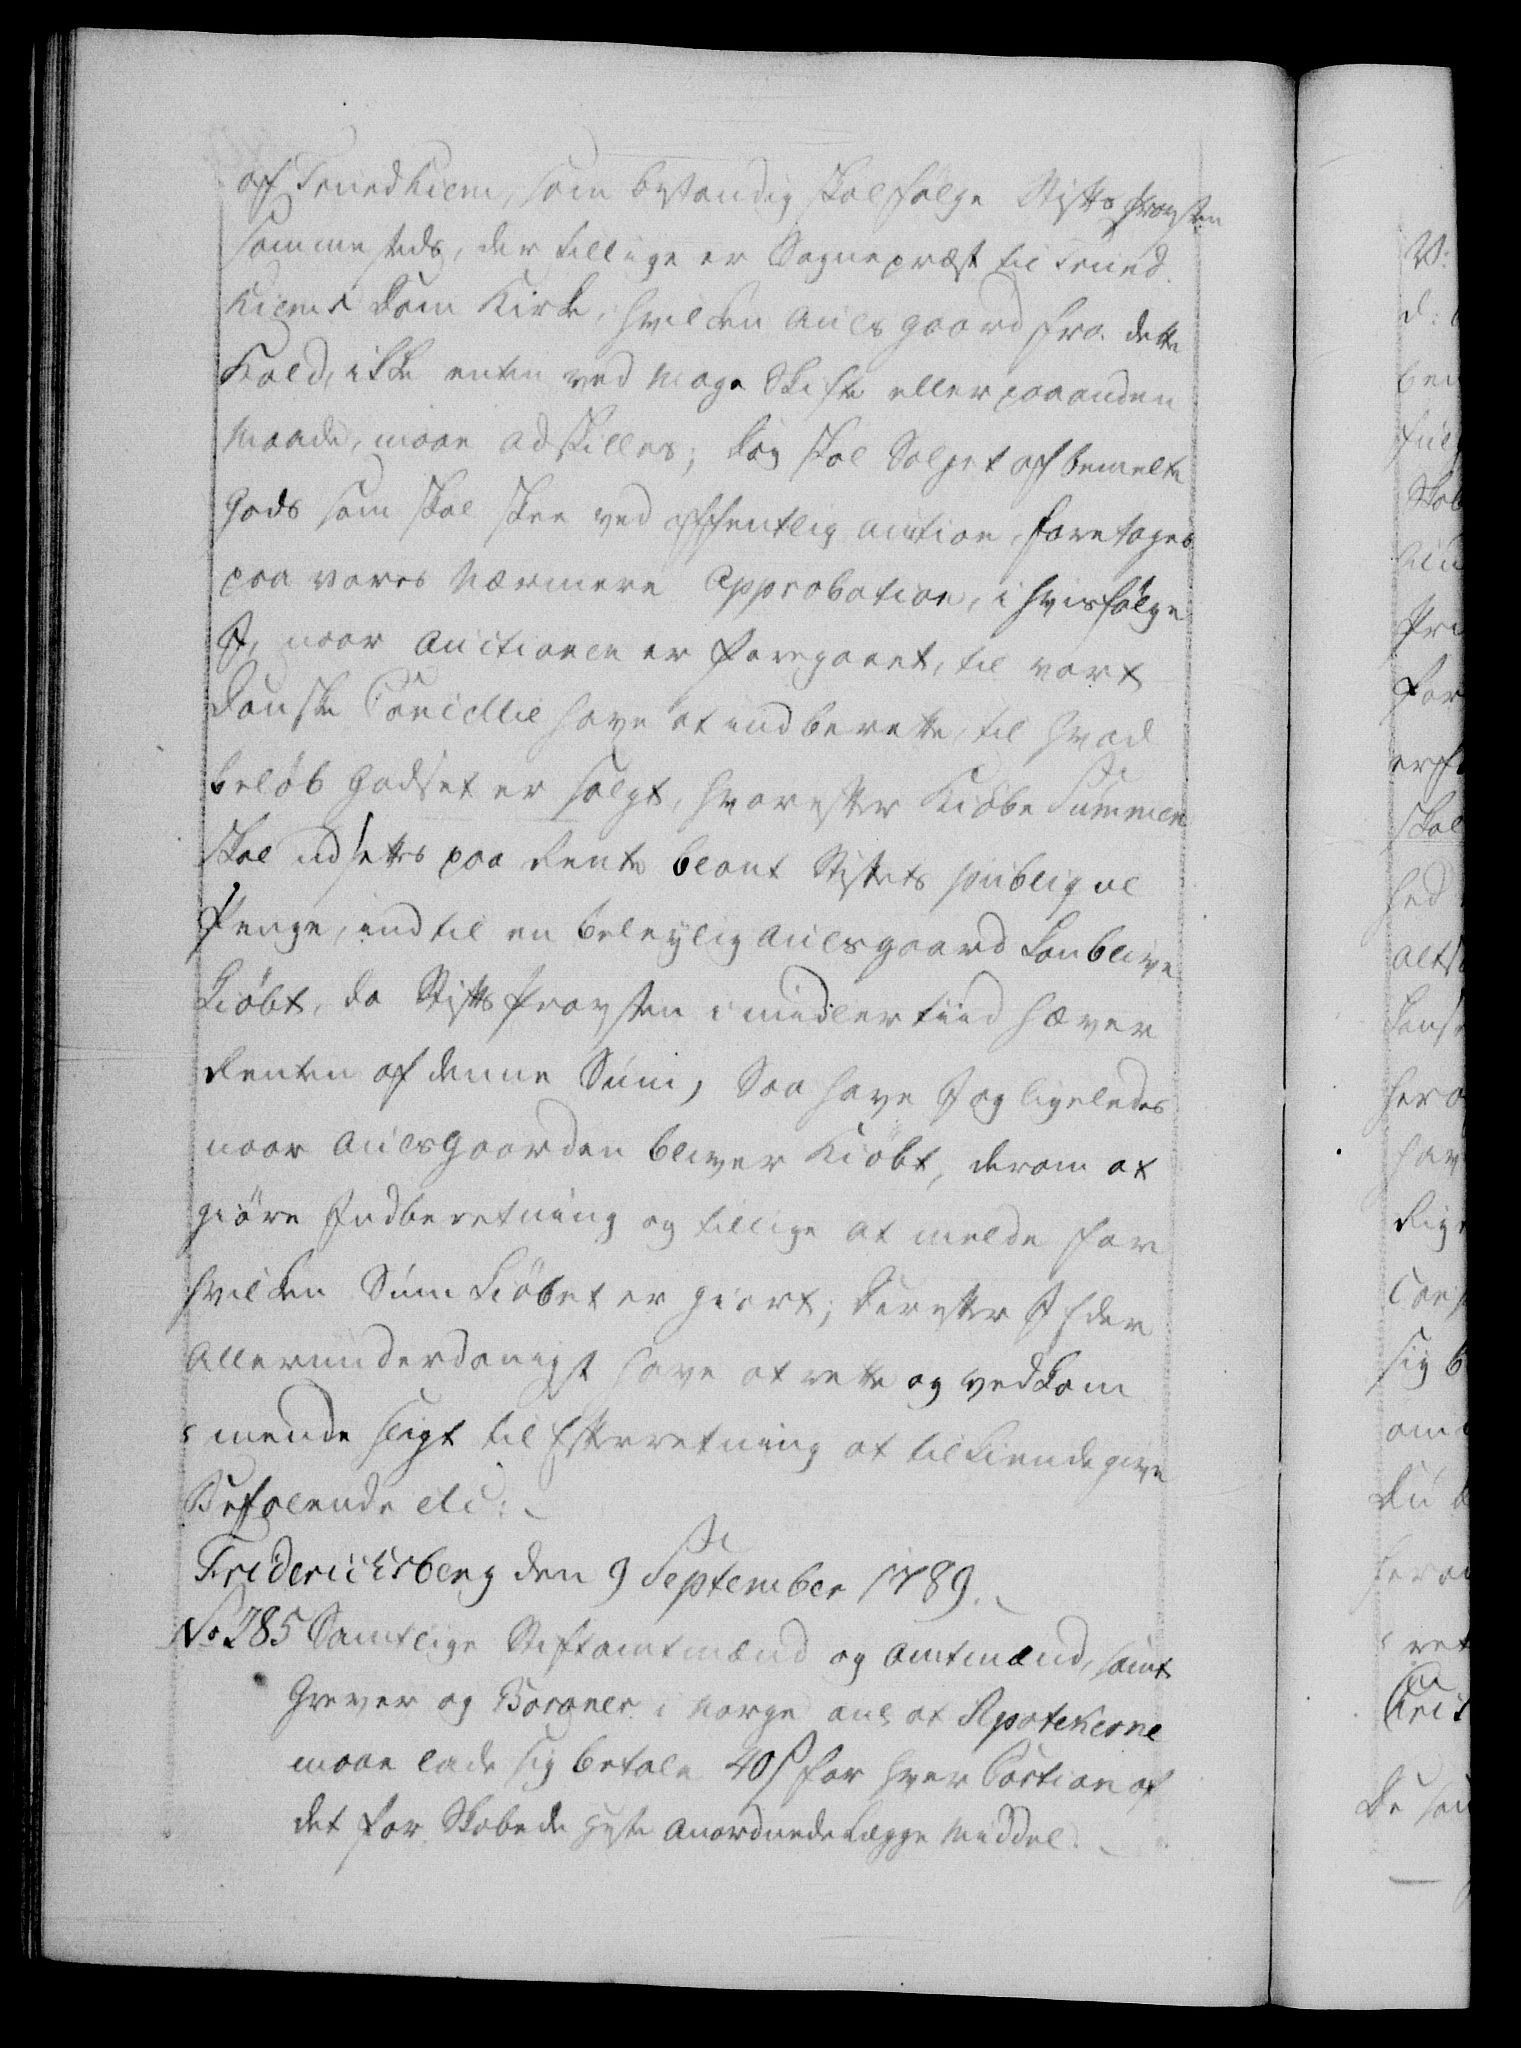 af Trundhiem, som bestandig skal følge Stifts Provsten
sammesteds, der tillige er Sognepræst til Trund-
hiems Dom Kirke, hvilken Auls gaard fra dette
Kald, ikke enten ved Mage Skifte eller paa anden
Maade, maae adskilles; dog skal Salget af bemelte
Gods som skal skee ved offentlig auction, foretages
paa vores Nærmere Approbation, i hvisfølge
I, naar Auctionen er foregaaet, til vort
Danske Cancellie have at indberette, til hvad
beløb Godset er solgt, hvorefter Kiøbe Summen
skal udsættes paa Rente blant Stiftets publiqve
Penge, indtil en beleylig Aulsgaard kan blive
Kiøbt, da Stifts Provsten imidlertiid hæver
Renten af denne Sum, Saa have I og ligeledes
naar Aulsgaarden bliver Kiøbt, derom at
giøre Indberetning og tillige at melde for
hvilken Sum Kiøbet er giort; Derefter I Eder
Allerunderdanigst have at rette og vedkom-
mende sligt til Efterretning at tilkiendegive
Befalende etc:
Fridericksberg den 9 September 1789.
No 285 Samtlige Stiftamtmænd og Amtmænd, samt
Grever og Baroner i Norge anl at Apotekerne
maae lade sig betale 40 ß for hver Portion af
det for Skabede Heste Anordnede Læge Middel.
W: